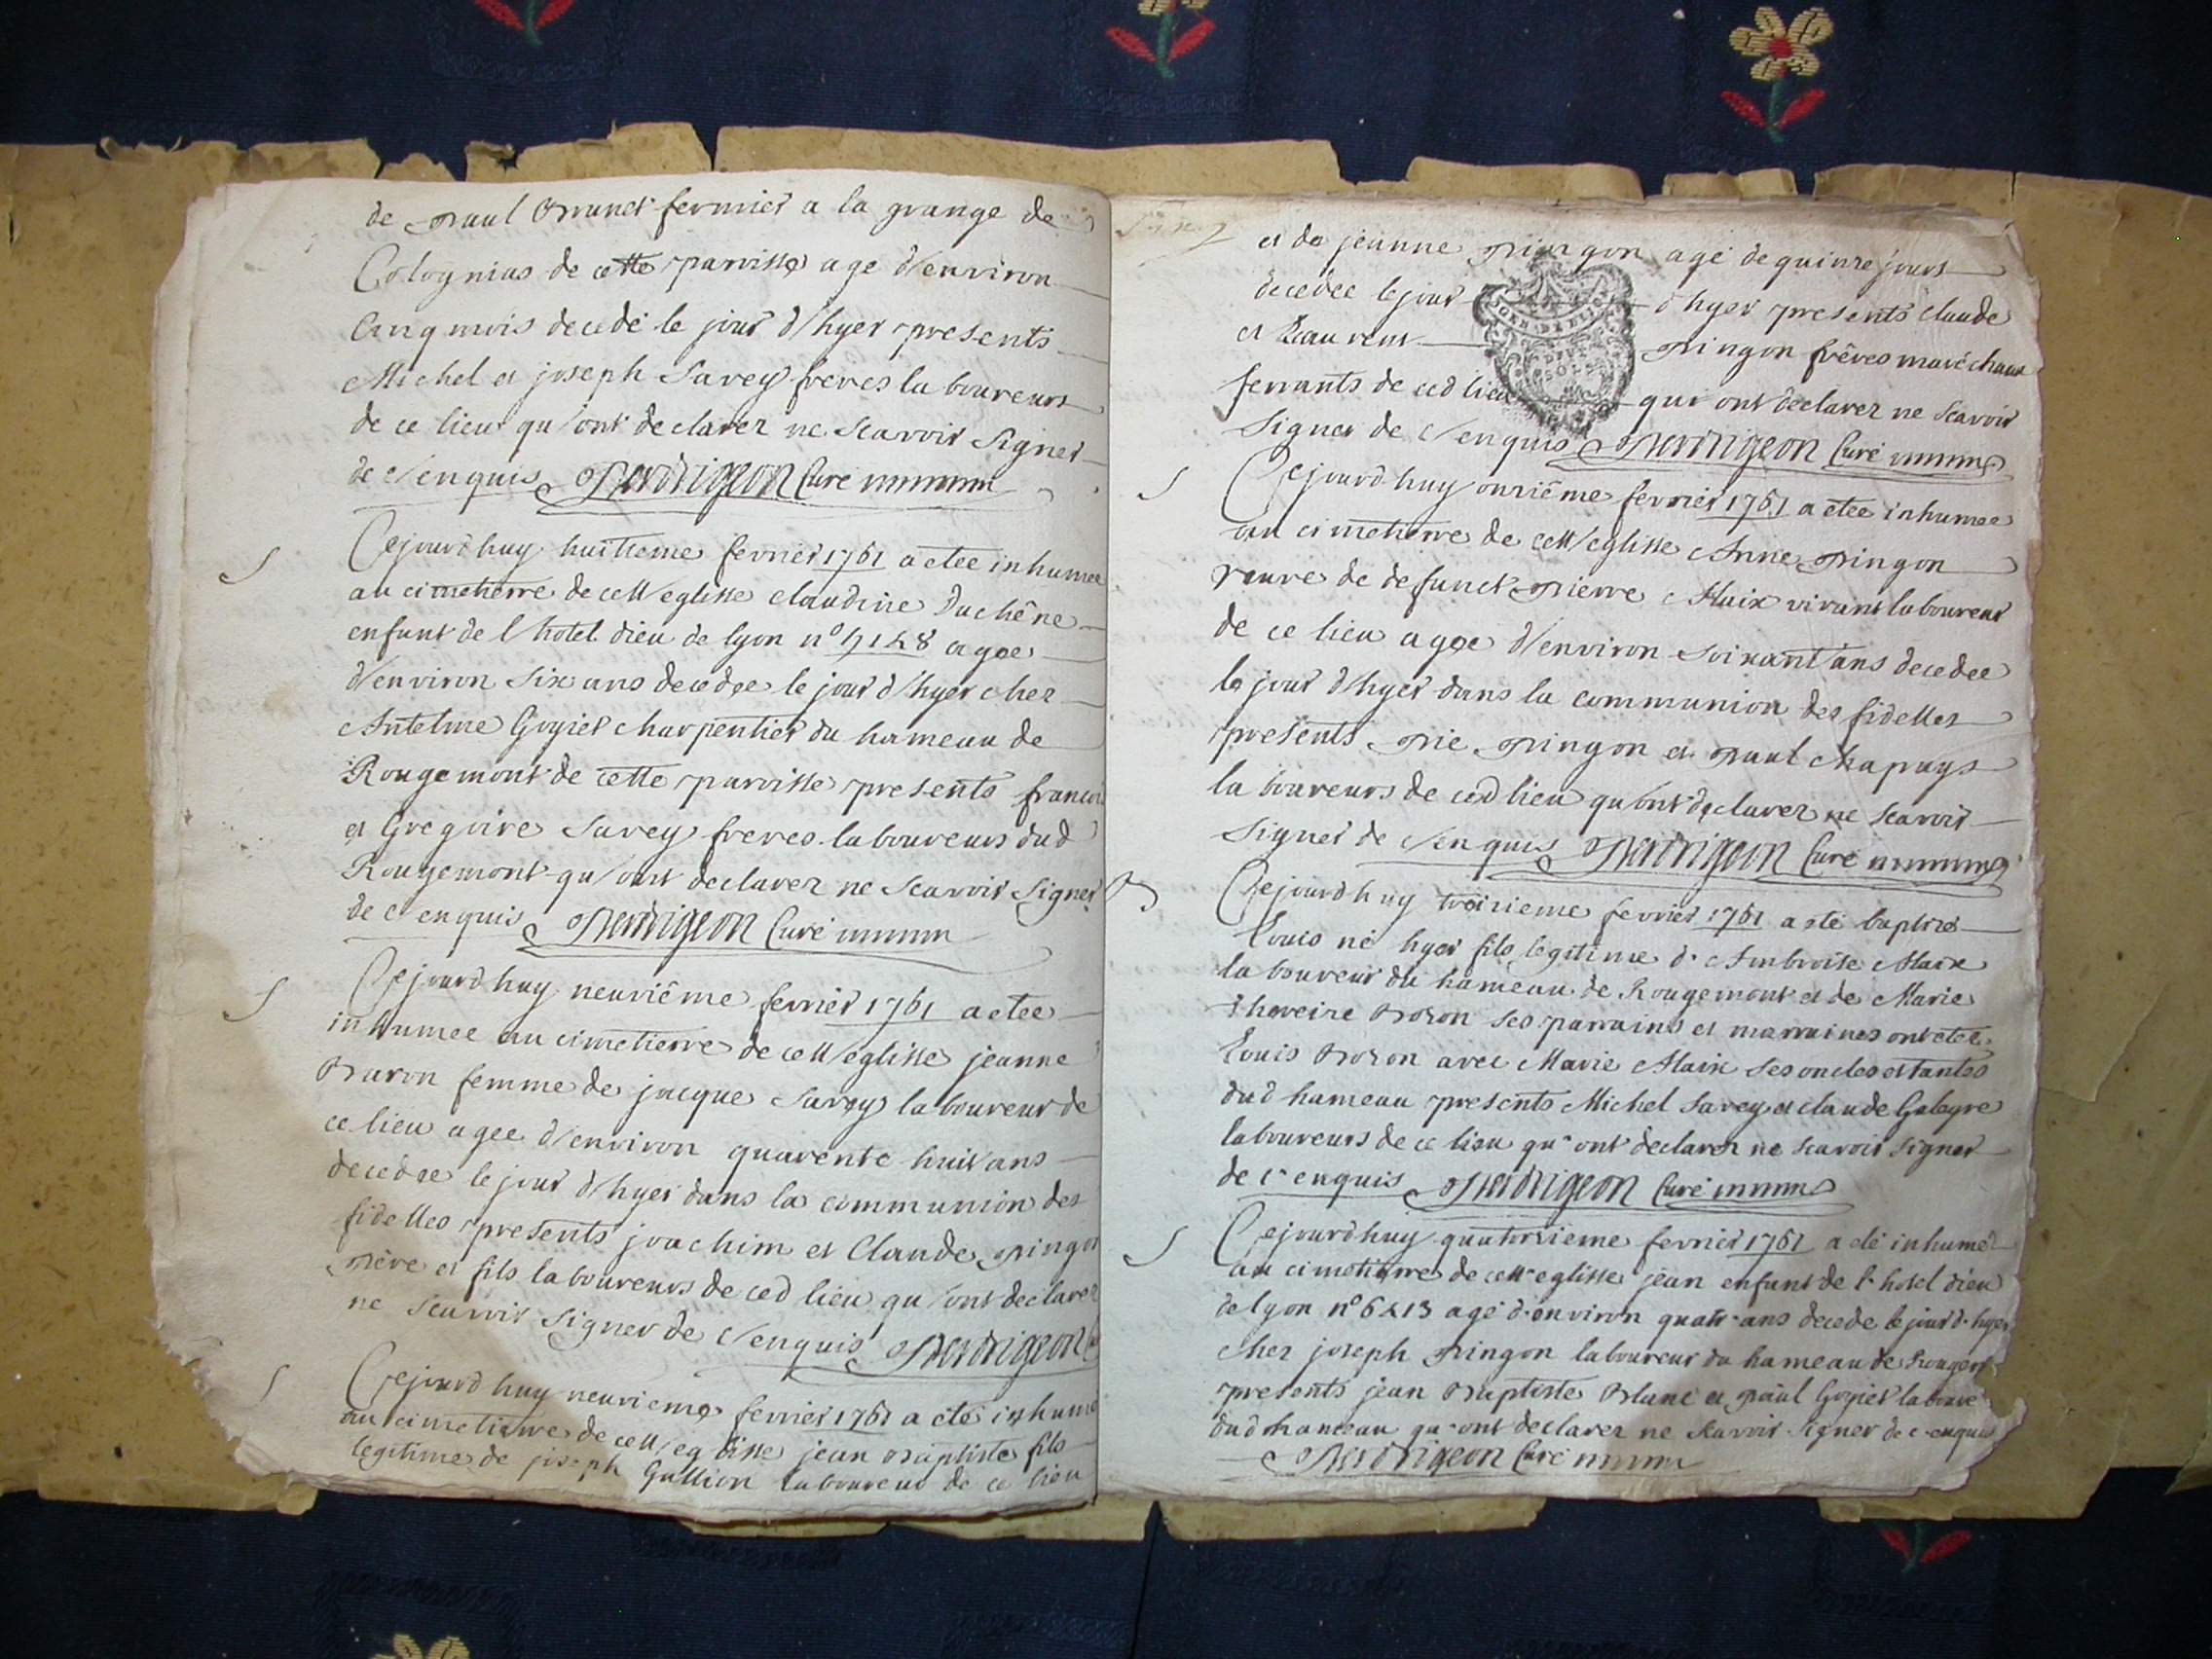 de paul Brunet fermier a la grange de
Colognias de cette paroisse age d'environ
Cinq mois decedé le jour d'hyer presents
Michel et joseph Savey freres laboureurs
de ce lieu qu'ont declarez ne Scavoir Signer
de c'enquis Perdrigeon Curé
Cejourdhuy huitieme fevrier 1761 a etee inhumee
au cimetierre de cett'eglisse claudine Duchêne
enfant de l'hotel dieu de lyon n° agee
d'environ Six ans decedee le jour d'hyer chez
Antelme Goyiet charpentier du hameau de
Rougemont de cette paroisse presents francois
et Gregoire Savey freres laboureurs dud
Rougemont qu'ont declarez ne Scavoir Signer
de c'enquis Perdrigeon Curé
Cejourdhuy neuviême fevrier 1761 a etee
inhumee au cimetierre de cett'eglisse jeanne
Baron femme de jacque Savey laboureur de
ce lieu agee d'environ quarente huit ans
decedee le jour d'hyer dans la communion des
fidelles presents joachim et Claude Pingon
Père et fils laboureurs de ced lieu qu'ont declarez
ne Scavoir Signer de c'enquis Perdrigeon
Cejourdhuy neuvieme fevrier 1761 a eté inhumé
au cimetierre de cett'eglisse jean Baptiste fils
legitime de joseph Gullion laboureur de ce lieu
et de jeanne Pingon agé de quinze jours
decedee le jour d'hyer presents claude
et Pingon frêres maréchaux
ferrants de ced lieu qui ont declarez ne Scavoir
Signer de c'enquis Perdrigeon Curé
DEUX
SOLS
Cejourdhuy onziême fevrier 1761 a etee inhumee
au cimetierre de cett'eglisse Anne Pingon
veuve de defunct Pierre Alaix vivant laboureur
de ce lieu agee d'environ Soixant'ans decedee
le jour d'hyer dans la communion des fidelles
presents Pie Pingon et Paul Chapuys
laboureurs de ced lieu qu'ont declarez ne Scavoir
Signer de c'enquis Perdrigeon Curé
B
Cejourdhuy troizieme fevrier 1761 a eté baptizé
Louis né hyer fils legitime d'Ambroise Alaix
laboureur du hameau de Rougemont et de Marie
Thereize Bozon Ses parrains et marraines ont etez
Louis Bozon avec Marie Alaix Ses oncles et tantes
dud hameau presents Michel Savey et claude Galeyre
laboureurs de ce lieu qu'ont declarez ne Scavoir Signer
de c'enquis Perdrigeon Curé
Cejourdhuy quatorzieme fevrier 1761 a eté inhumé
au cimetierre de cett'eglisse jean enfant de l'hotel dieu
de lyon n° agé d'environ quatr'ans decede le jour d'hyer
chez joseph Pingon laboureur du hameau de
presents jean Baptiste Blanc et Paul Goyiet
dud hameau qu'ont declarez ne Scavoir Signer de c'enquis
Perdrigeon Curé